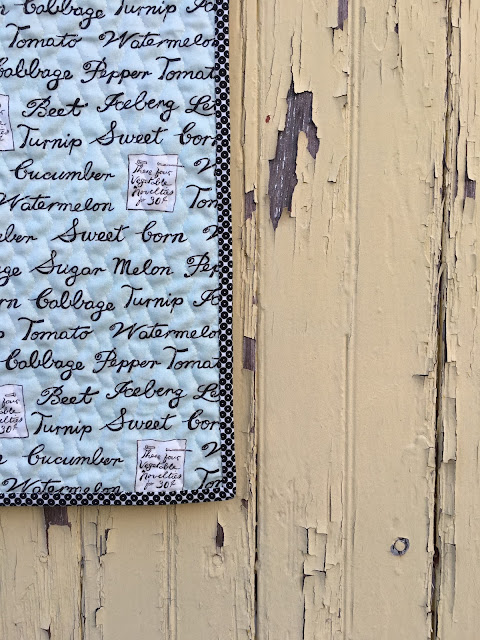 Cabbage Turnip
Tomato Watermelon
Cabbage Pepper Tomat
Beet Iceberg Le
Turnip Sweet Corn
Cucumber
These four
Vegetable
Novelties
for 30¢
W
Watermelon
Tom
Sweet Corn W
Sugar Melon Pep
Cabbage Turnip
Tomato Watermelon
Cabbage Pepper Tomat
Beet Iceberg Le
Turnip Sweet Corn
Cucumber
These four
Vegetable
Novelties
for 30¢
W
Watermelon
To